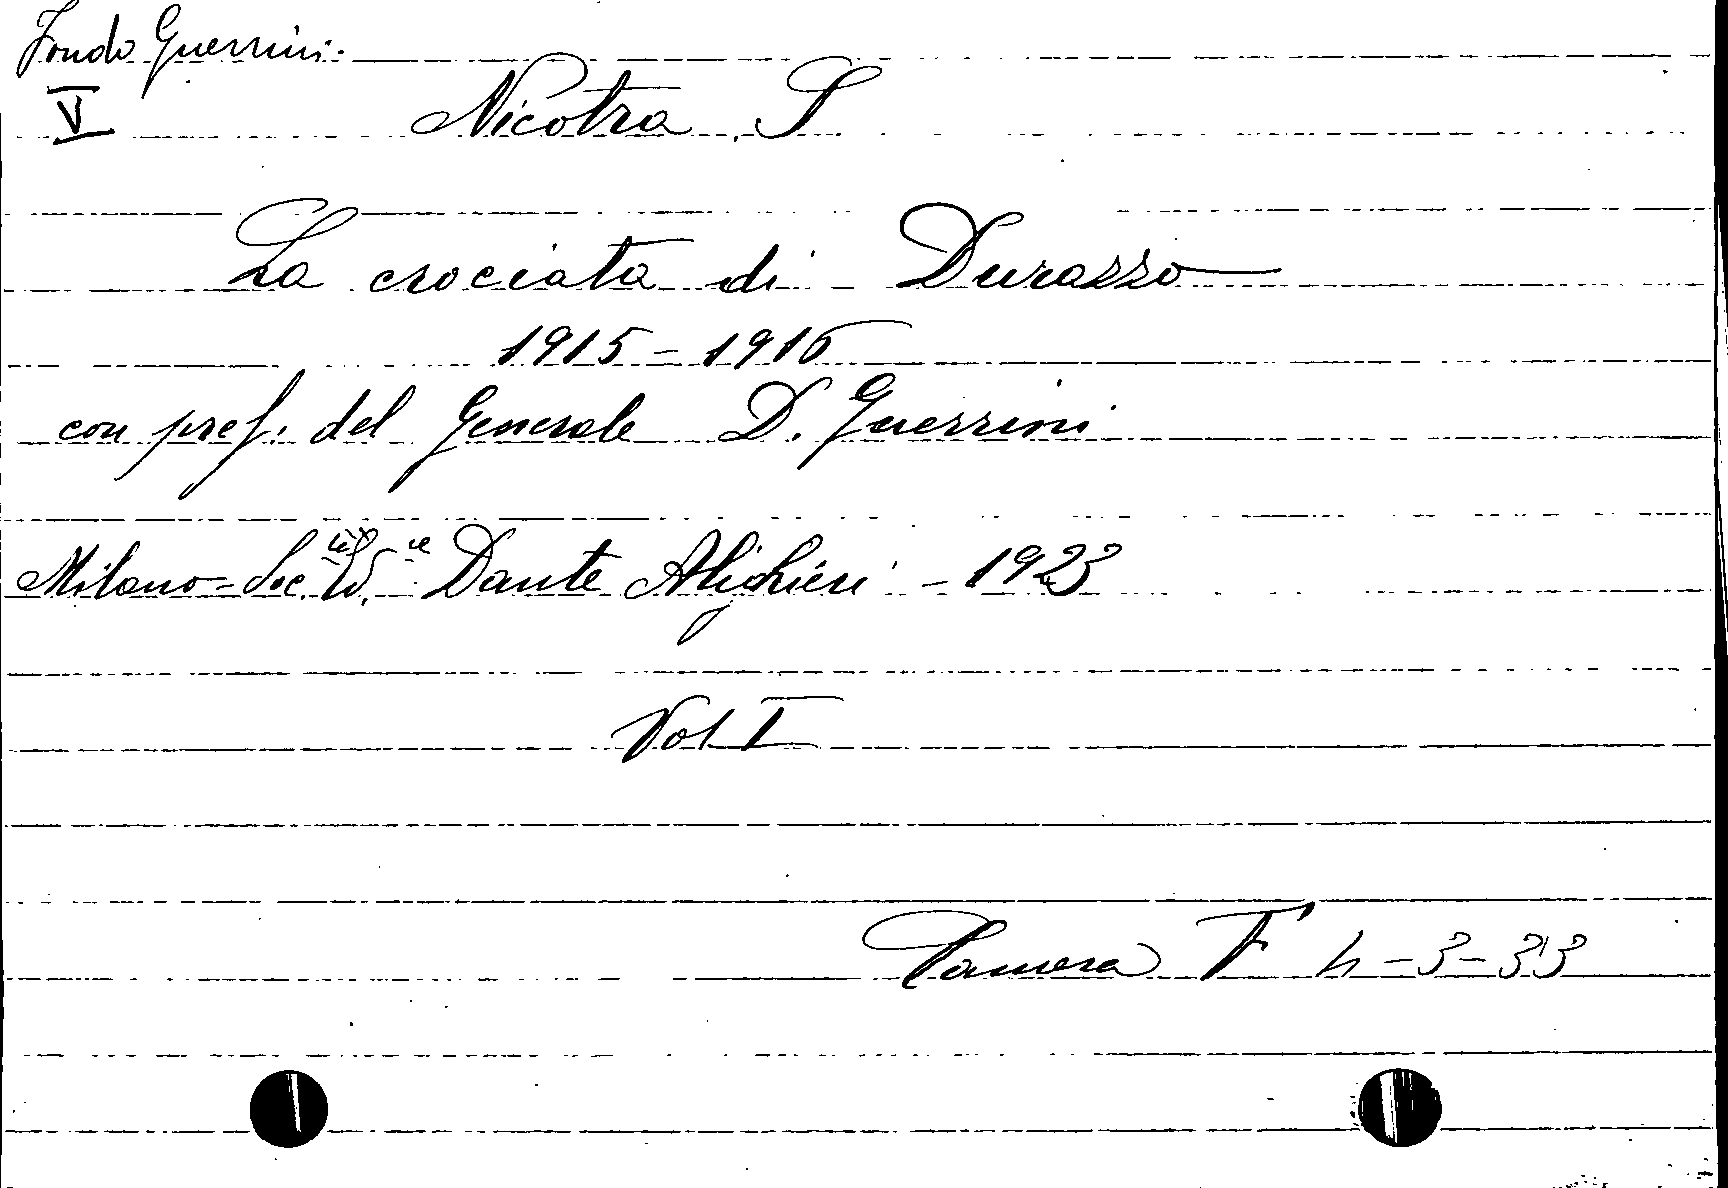 Fondo Guerrini.
V
Nicotra S
La crociata di Durazzo
1915-1916
con pref. del Generale D. Guerrini
Milano = Soc. Ed. ce Dante Alighieri - 1923
Vol I
Camera F h-3-33